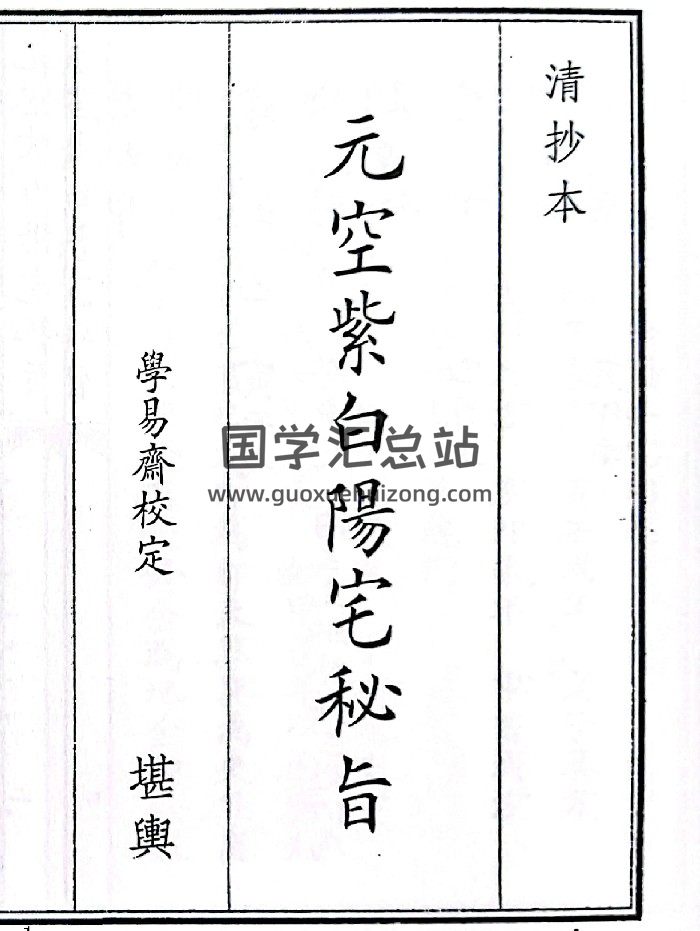 清抄本
元空紫白陽宅秘旨
學易齋校定
堪輿
国学汇总站
www.guoxuehuizong.com